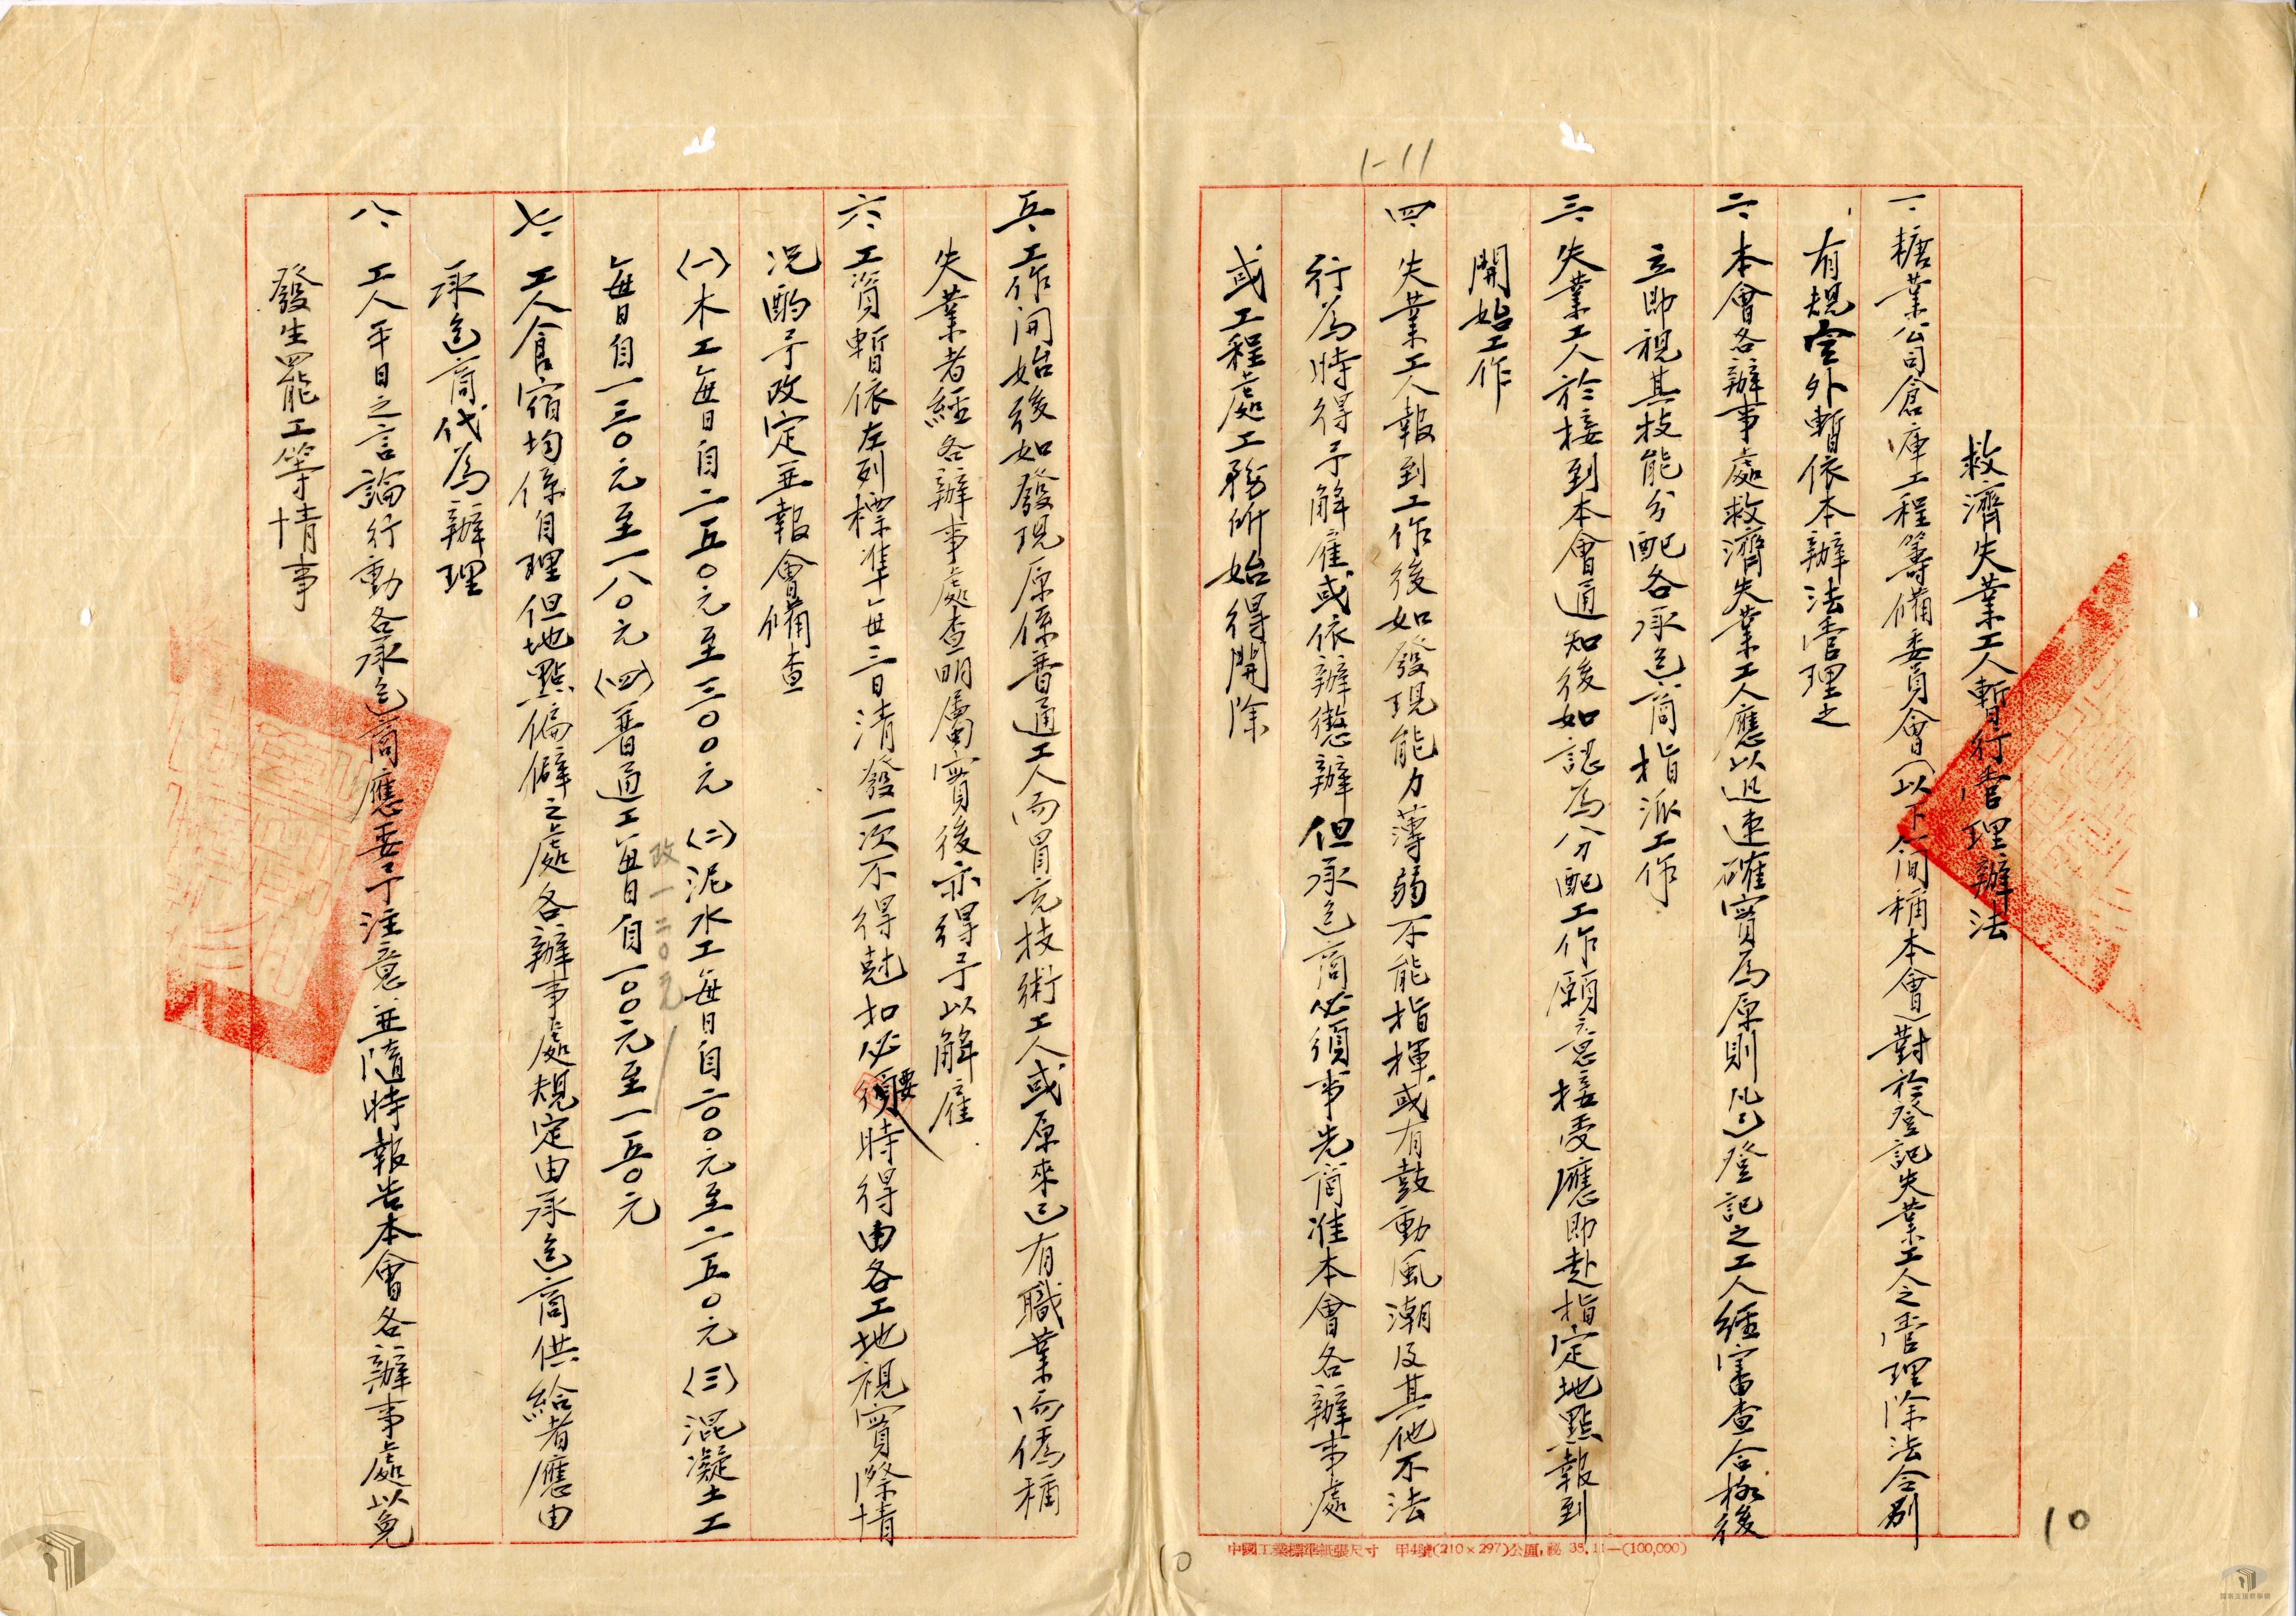 救濟失業工人暫行管理辦法
一、糖業公司倉庫工程籌備委員會(以下簡稱本會)對於登記失業工人之管理除法令別
有規定外暫依本辦法管理之
二、本會各辦事處救濟失業工人應以迅速確實為原則凡已登記之工人經審查合格後
立即視其技能分配各承包商指派工作
三、失業工人於接到本會通知後如認為分配工作願意接受應即赴指定地點報到
開始工作
四、失業工人報到工作後如發現能力薄弱不能指揮或有鼓動風潮及其他不法
行為時得予解雇或依辦懲辦但承包商必須事先商准本會各辦事處
或工程處工務所始得開除
五、工作開始後如發現原係普通工人而冒充技術工人或原來已有職業而偽稱
失業者經各辦事處查明屬實後亦得予以解雇
六、工資暫依左列標準每三日清發一次不得尅扣必要時得由各工地視實際情
況酌予改定並報會備查
(一)木工每日自二五〇元至三〇〇元(二)泥水工每日自二〇〇元至二五〇元(三)混凝土工
每日自一三〇元至一八〇元(四)普通工每日自一〇〇元至一五〇元
改一二〇元
七、工人食宿均係自理但地點偏僻之處各辦事處規定由承包商供給者應由
承包商代為辦理
八、工人平日之言論行動各承包商應妥予注意並隨時報告本會各辦事處以免
發生罷工等情事
1-11
10
10
中國工業標準紙張尺寸 甲4號(210×297)公厘,秘 35.11—(100,000)